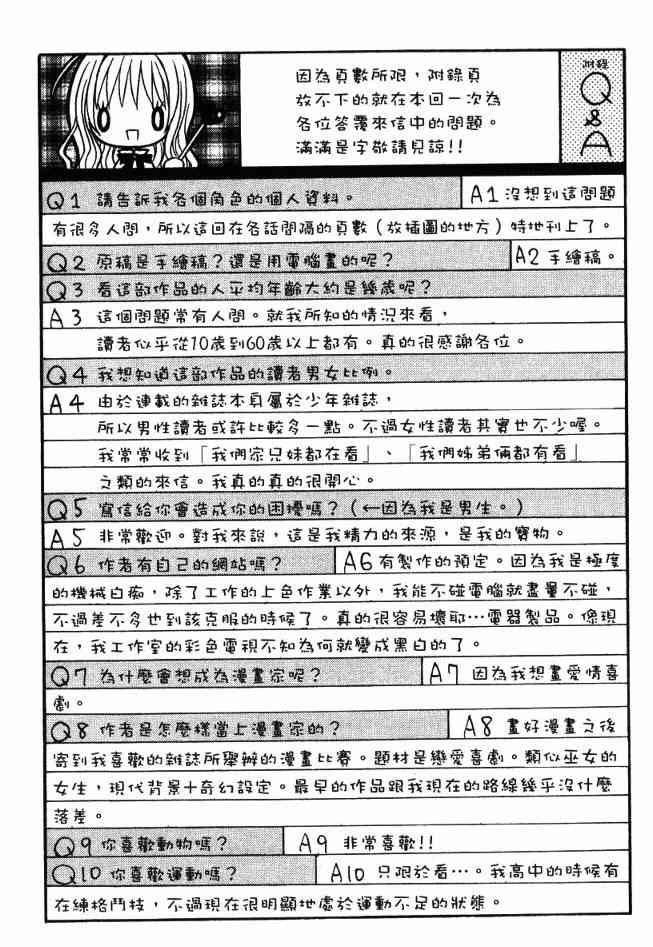 因為頁數所限，附錄頁
放不下的就在本回一次為
各位答覆來信中的問題。
滿滿是字敬請見諒!!
附錄
Q
&
A
Q1 請告訴我各個角色的個人資料。 A1 沒想到這問題
有很多人問，所以這回在各話間隔的頁數（放插圖的地方）特地刊上了。
Q2 原稿是手繪稿？還是用電腦畫的呢？ A2 手繪稿。
Q3 看這部作品的人平均年齡大約是幾歲呢？
A3 這個問題常有人問。就我所知的情況來看，
讀者似乎從10歲到60歲以上都有。真的很感謝各位。
Q4 我想知道這部作品的讀者男女比例。
A4 由於連載的雜誌本頁屬於少年雜誌，
所以男性讀者或許比較多一點。不過女性讀者其實也不少喔。
我常常收到「我們家兄妹都在看」、「我們姊弟倆都有看」
之類的來信。我真的真的很開心。
Q5 寫信給你會造成你的困擾嗎？（←因為我是男生。）
A5 非常歡迎。對我來說，這是我精力的來源，是我的寶物。
Q6 作者有自己的網站嗎？ A6 有製作的預定。因為我是極度
的機械白痴，除了工作的上色作業以外，我能不碰電腦就盡量不碰，
不過差不多也到該克服的時候了。真的很容易壞耶…電器製品。像現
在，我工作室的彩色電視不知為何就變成黑白的了。
Q7 為什麼會想成為漫畫家呢？ A7 因為我想畫愛情喜
劇。
Q8 作者是怎麼樣當上漫畫家的？ A8 畫好漫畫之後
寄到我喜歡的雜誌所舉辦的漫畫比賽。題材是戀愛喜劇。類似巫女的
女生，現代背景＋奇幻設定。最早的作品跟我現在的路線幾乎沒什麼
落差。
Q9 你喜歡動物嗎？ A9 非常喜歡!!
Q10 你喜歡運動嗎？ A10 只限於看…。我高中的時候有
在練格鬥技，不過現在很明顯地處於運動不足的狀態。